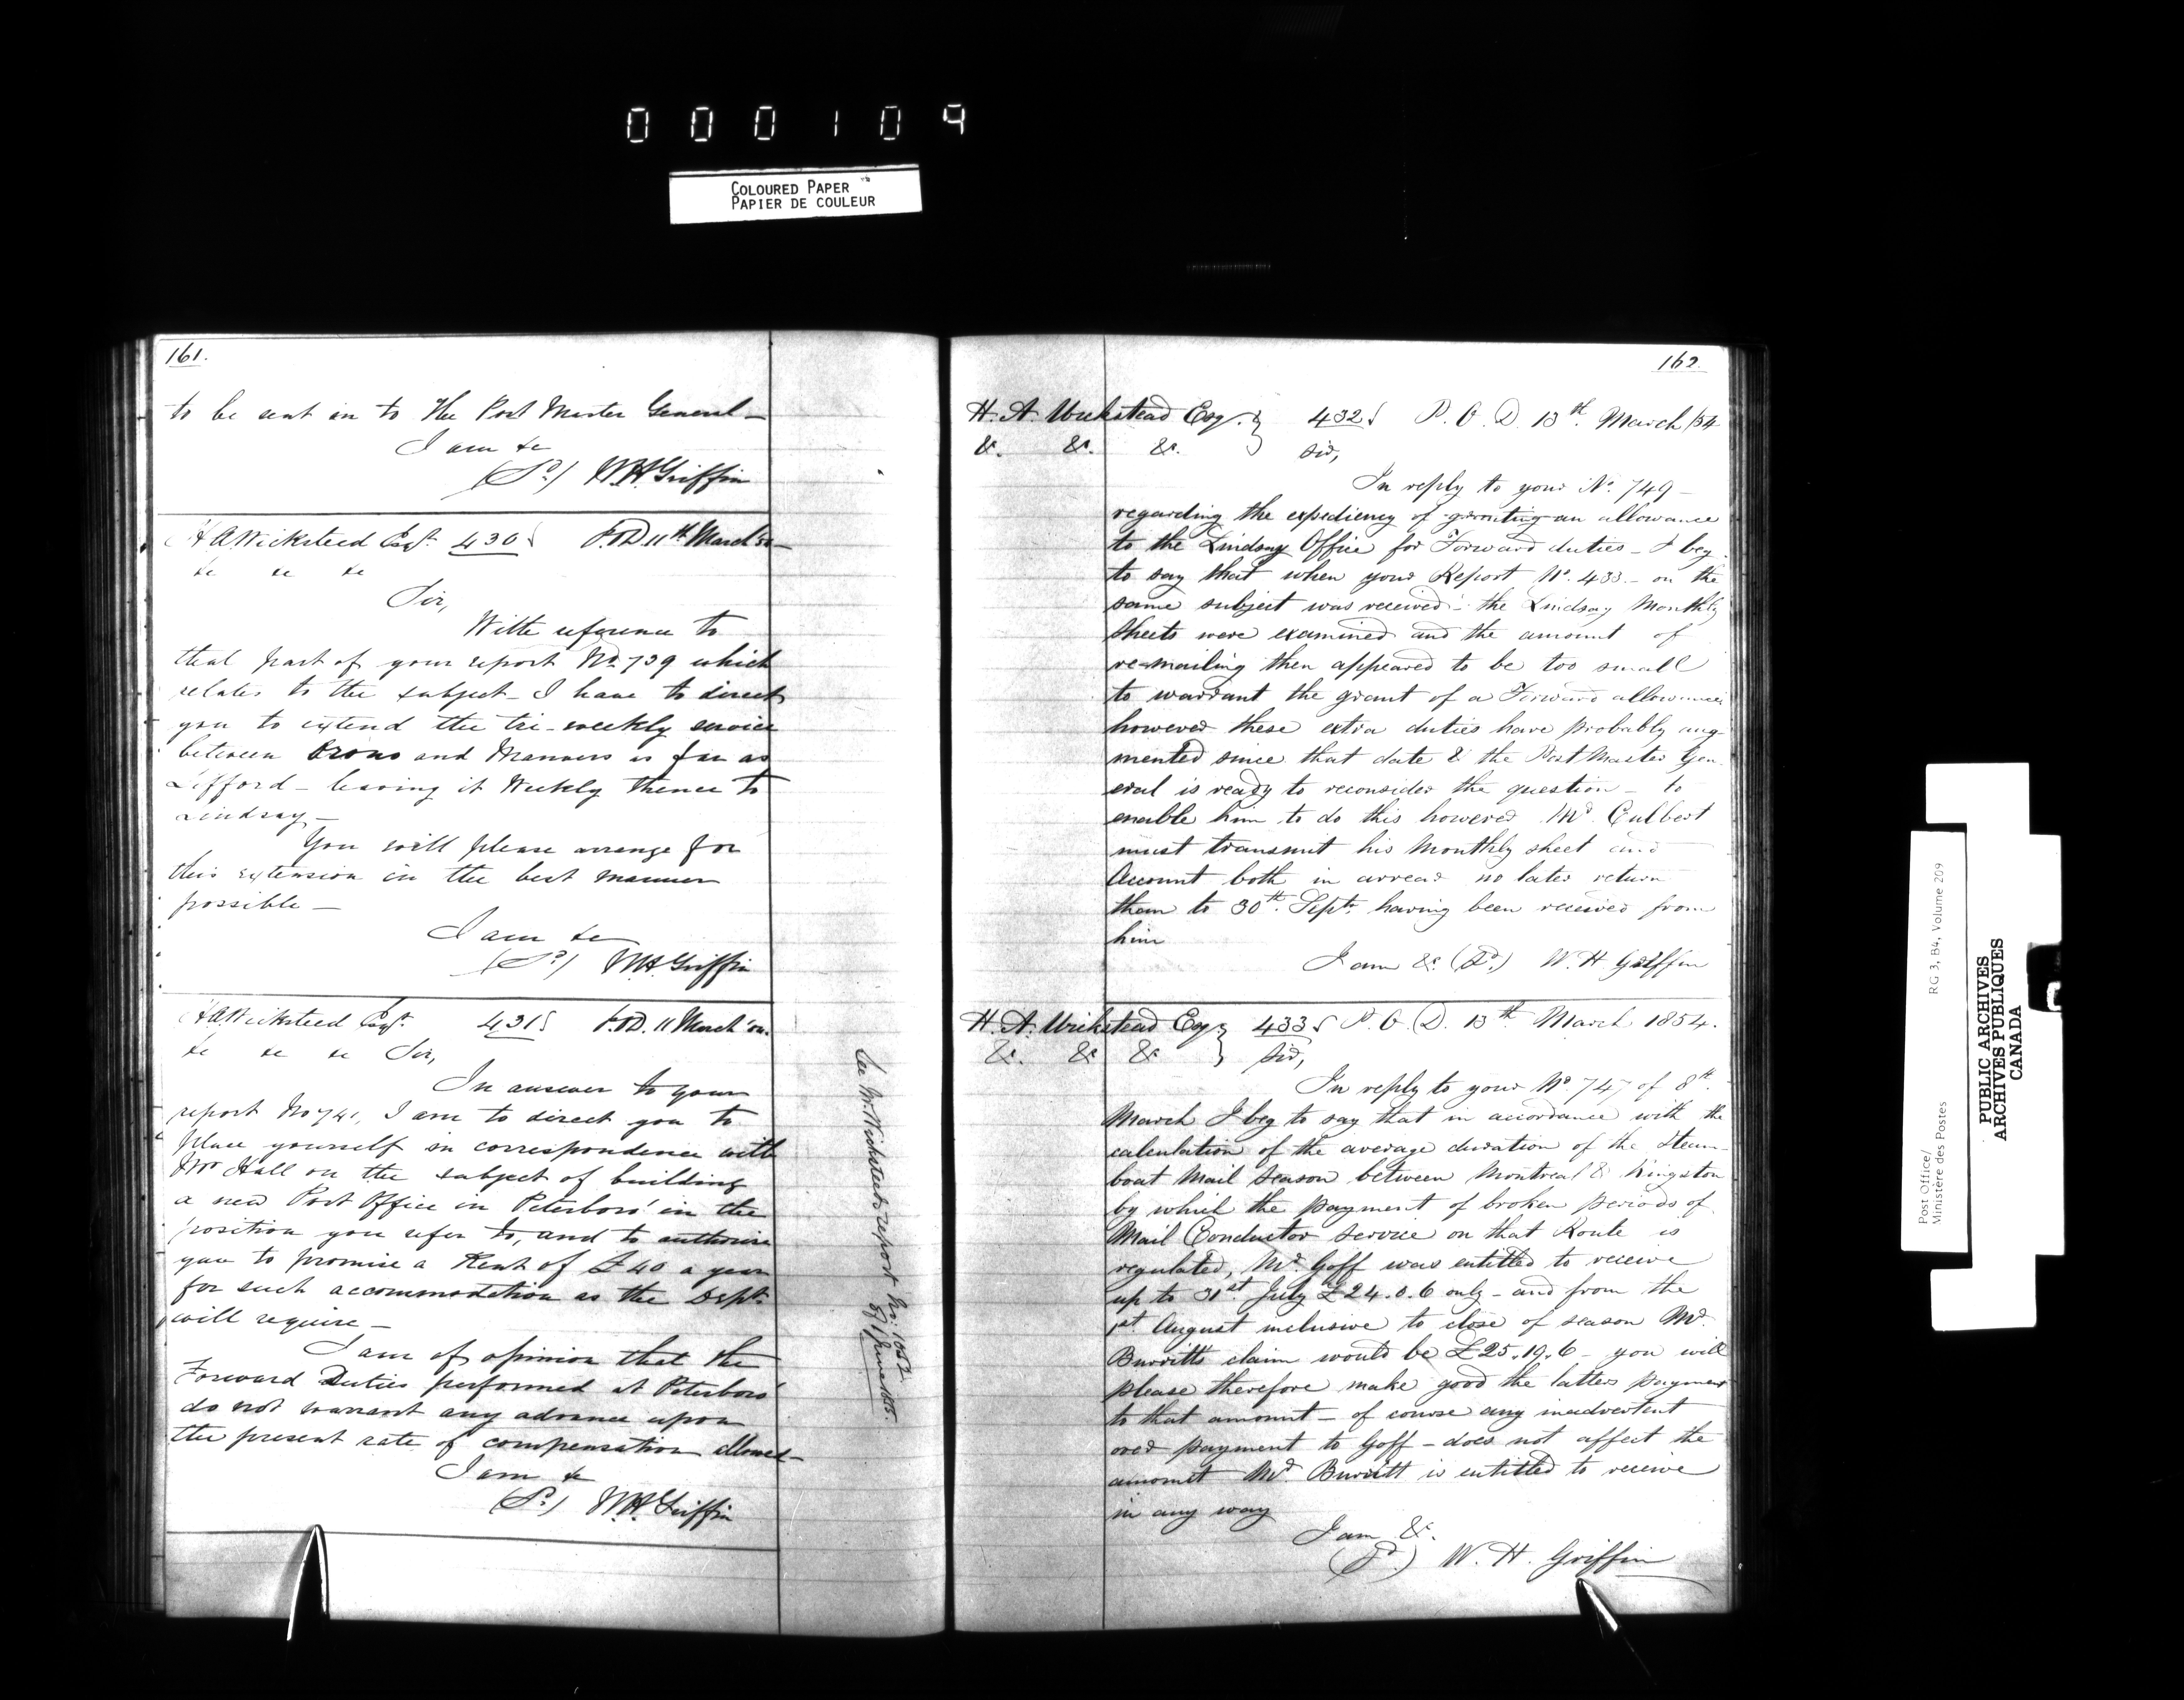 000109
COLOURED PAPER
PAPIER DE COULEUR
161.
to be sent in to The Post Master General_
I am &c
(Sd) WH Griffin
H A Wicksteed Esqr. 430 P.O.D. 11th March
&c &c &c
Sir,
With reference to
that part of your report No. 739 which
relates to the subject_ I have to direct
you to extend the tri-weekly service
between Orono and Manvers as far as
Lifford_ leaving it Weekly thence to
Lindsay_
You will please arrange for
this extension in the best manner
possible_
I am &c
(Sd) WH Griffin
H A Wicksteed Esqr. 431 P.O.D. 11 March
&c &c &c Sir,
In answer to your
report No 741, I am to direct you to
place yourself in correspondence with
Mr Hall on the subject of building
a new Post Office in Peterboro' in the
position you refer to, and to authorise
you to promise a Rent of £40 a year
for such accommodation as the Dept.
will require_
I am of opinion that the
Forward Duties performed at Peterboro'
do not warrant any advance upon
the present rate of compensation allowed_
I am &c
(Sd) W.H. Griffin
See Mr. Wicksteed's report No:
of June
162.
H. A. Wickstead Esq. 432 P. O. D. 13th. March /54
&c. &c. &c. Sir,
In reply to your No. 749_
regarding the expediency of granting an allowance
to the Lindsay Office for Forward duties_ I beg
to say that when your Report No. 433_ on the
same subject was received_ the Lindsay Monthly
Sheets were examined and the amount of
re=mailing then appeared to be too small
to warrant the grant of a Forward allowance
however these extra duties have probably aug-
mented since that date & the Post Master Gen-
eral is ready to reconsider the question_ to
enable him to do this however Mr. Culbert
must transmit his Monthly sheet and
Account both in arrear no later return
than to 30th. Sept. having been received from
him
I am &c. (Sd.) W. H Griffin
H. A. Wickstead Esq 433 P. O. D. 13th March 1854.
&c. &c &c Sir,
In reply to your No 747 of 8th.
March I beg to say that in accordance with the
calculation of the average duration of the Steam-
boat Mail Season between Montreal & Kingston
by which the payment of broken periods of
Mail Conductor Service on that Route is
regulated, Mr. Goff was entitled to receive
up to 31st July £24.0.6 only_ and from the
1st. August inclusive to close of season Mr.
Burritts claim would be £25.19.6_ you will
please therefore make good the latters payment
to that amount_ of course any inadvertent
over payment to Goff_ does not affect the
amount Mr. Burritt is entitled to receive
in any way
I am &c.
(Sd.) W. H. Griffin
Post Office/
Ministère des Postes
RG 3, B4, Volume 209
PUBLIC ARCHIVES
ARCHIVES PUBLIQUES
CANADA